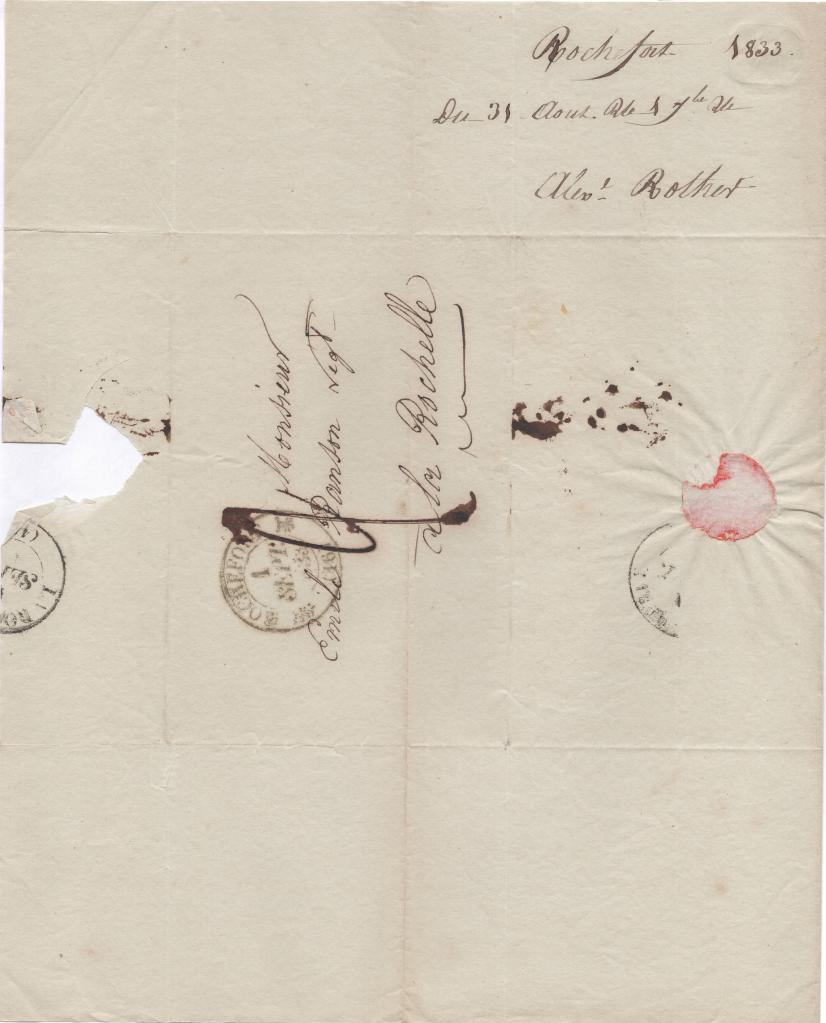 Rochefort 1833.
Du 31 Aout. Rle 1 7bre de
Alext. Rother
Monsieur
Emile Ranson Negt
a La Rochelle
ROCHEFORT
1
SEPT
1833
(16)
LA RO
SE
(1